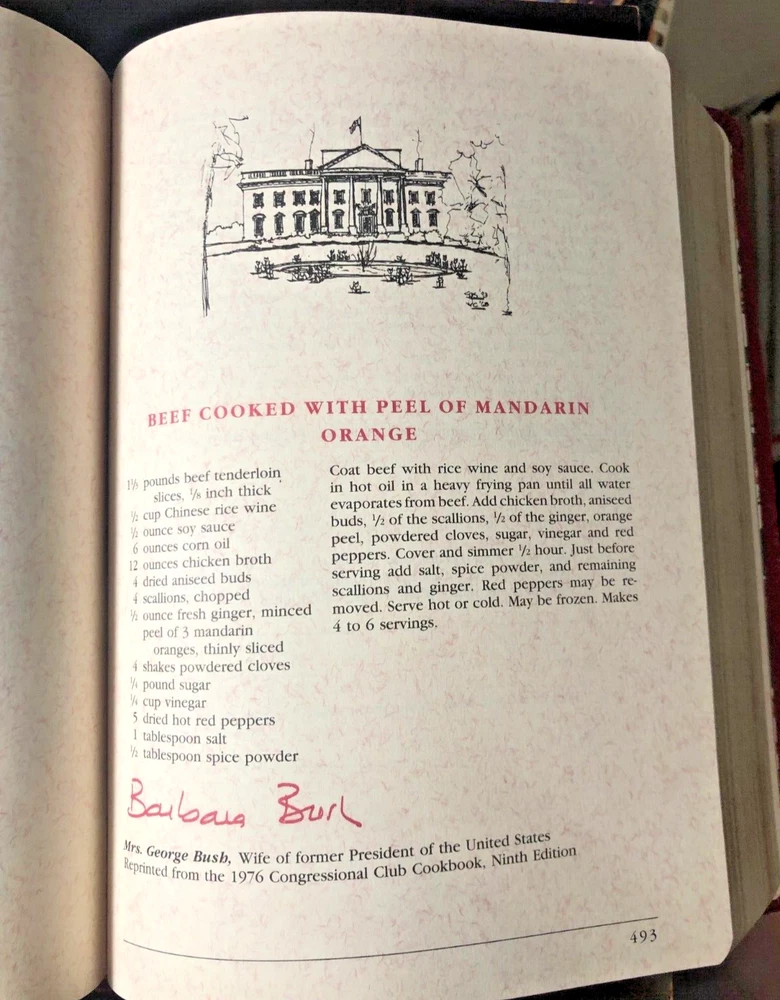 BEEF COOKED WITH PEEL OF MANDARIN
ORANGE
1⅓ pounds beef tenderloin
slices, ⅛ inch thick
½ cup Chinese rice wine
½ ounce soy sauce
6 ounces corn oil
12 ounces chicken broth
4 dried aniseed buds
4 scallions, chopped
½ ounce fresh ginger, minced
peel of 3 mandarin
oranges, thinly sliced
4 shakes powdered cloves
¼ pound sugar
¼ cup vinegar
5 dried hot red peppers
1 tablespoon salt
½ tablespoon spice powder
Coat beef with rice wine and soy sauce. Cook
in hot oil in a heavy frying pan until all water
evaporates from beef. Add chicken broth, aniseed
buds, 1/2 of the scallions, 1/2 of the ginger, orange
peel, powdered cloves, sugar, vinegar and red
peppers. Cover and simmer 1/2 hour. Just before
serving add salt, spice powder, and remaining
scallions and ginger. Red peppers may be re-
moved. Serve hot or cold. May be frozen. Makes
4 to 6 servings.
Barbara Bush
Mrs. George Bush, Wife of former President of the United States
Reprinted from the 1976 Congressional Club Cookbook, Ninth Edition
493